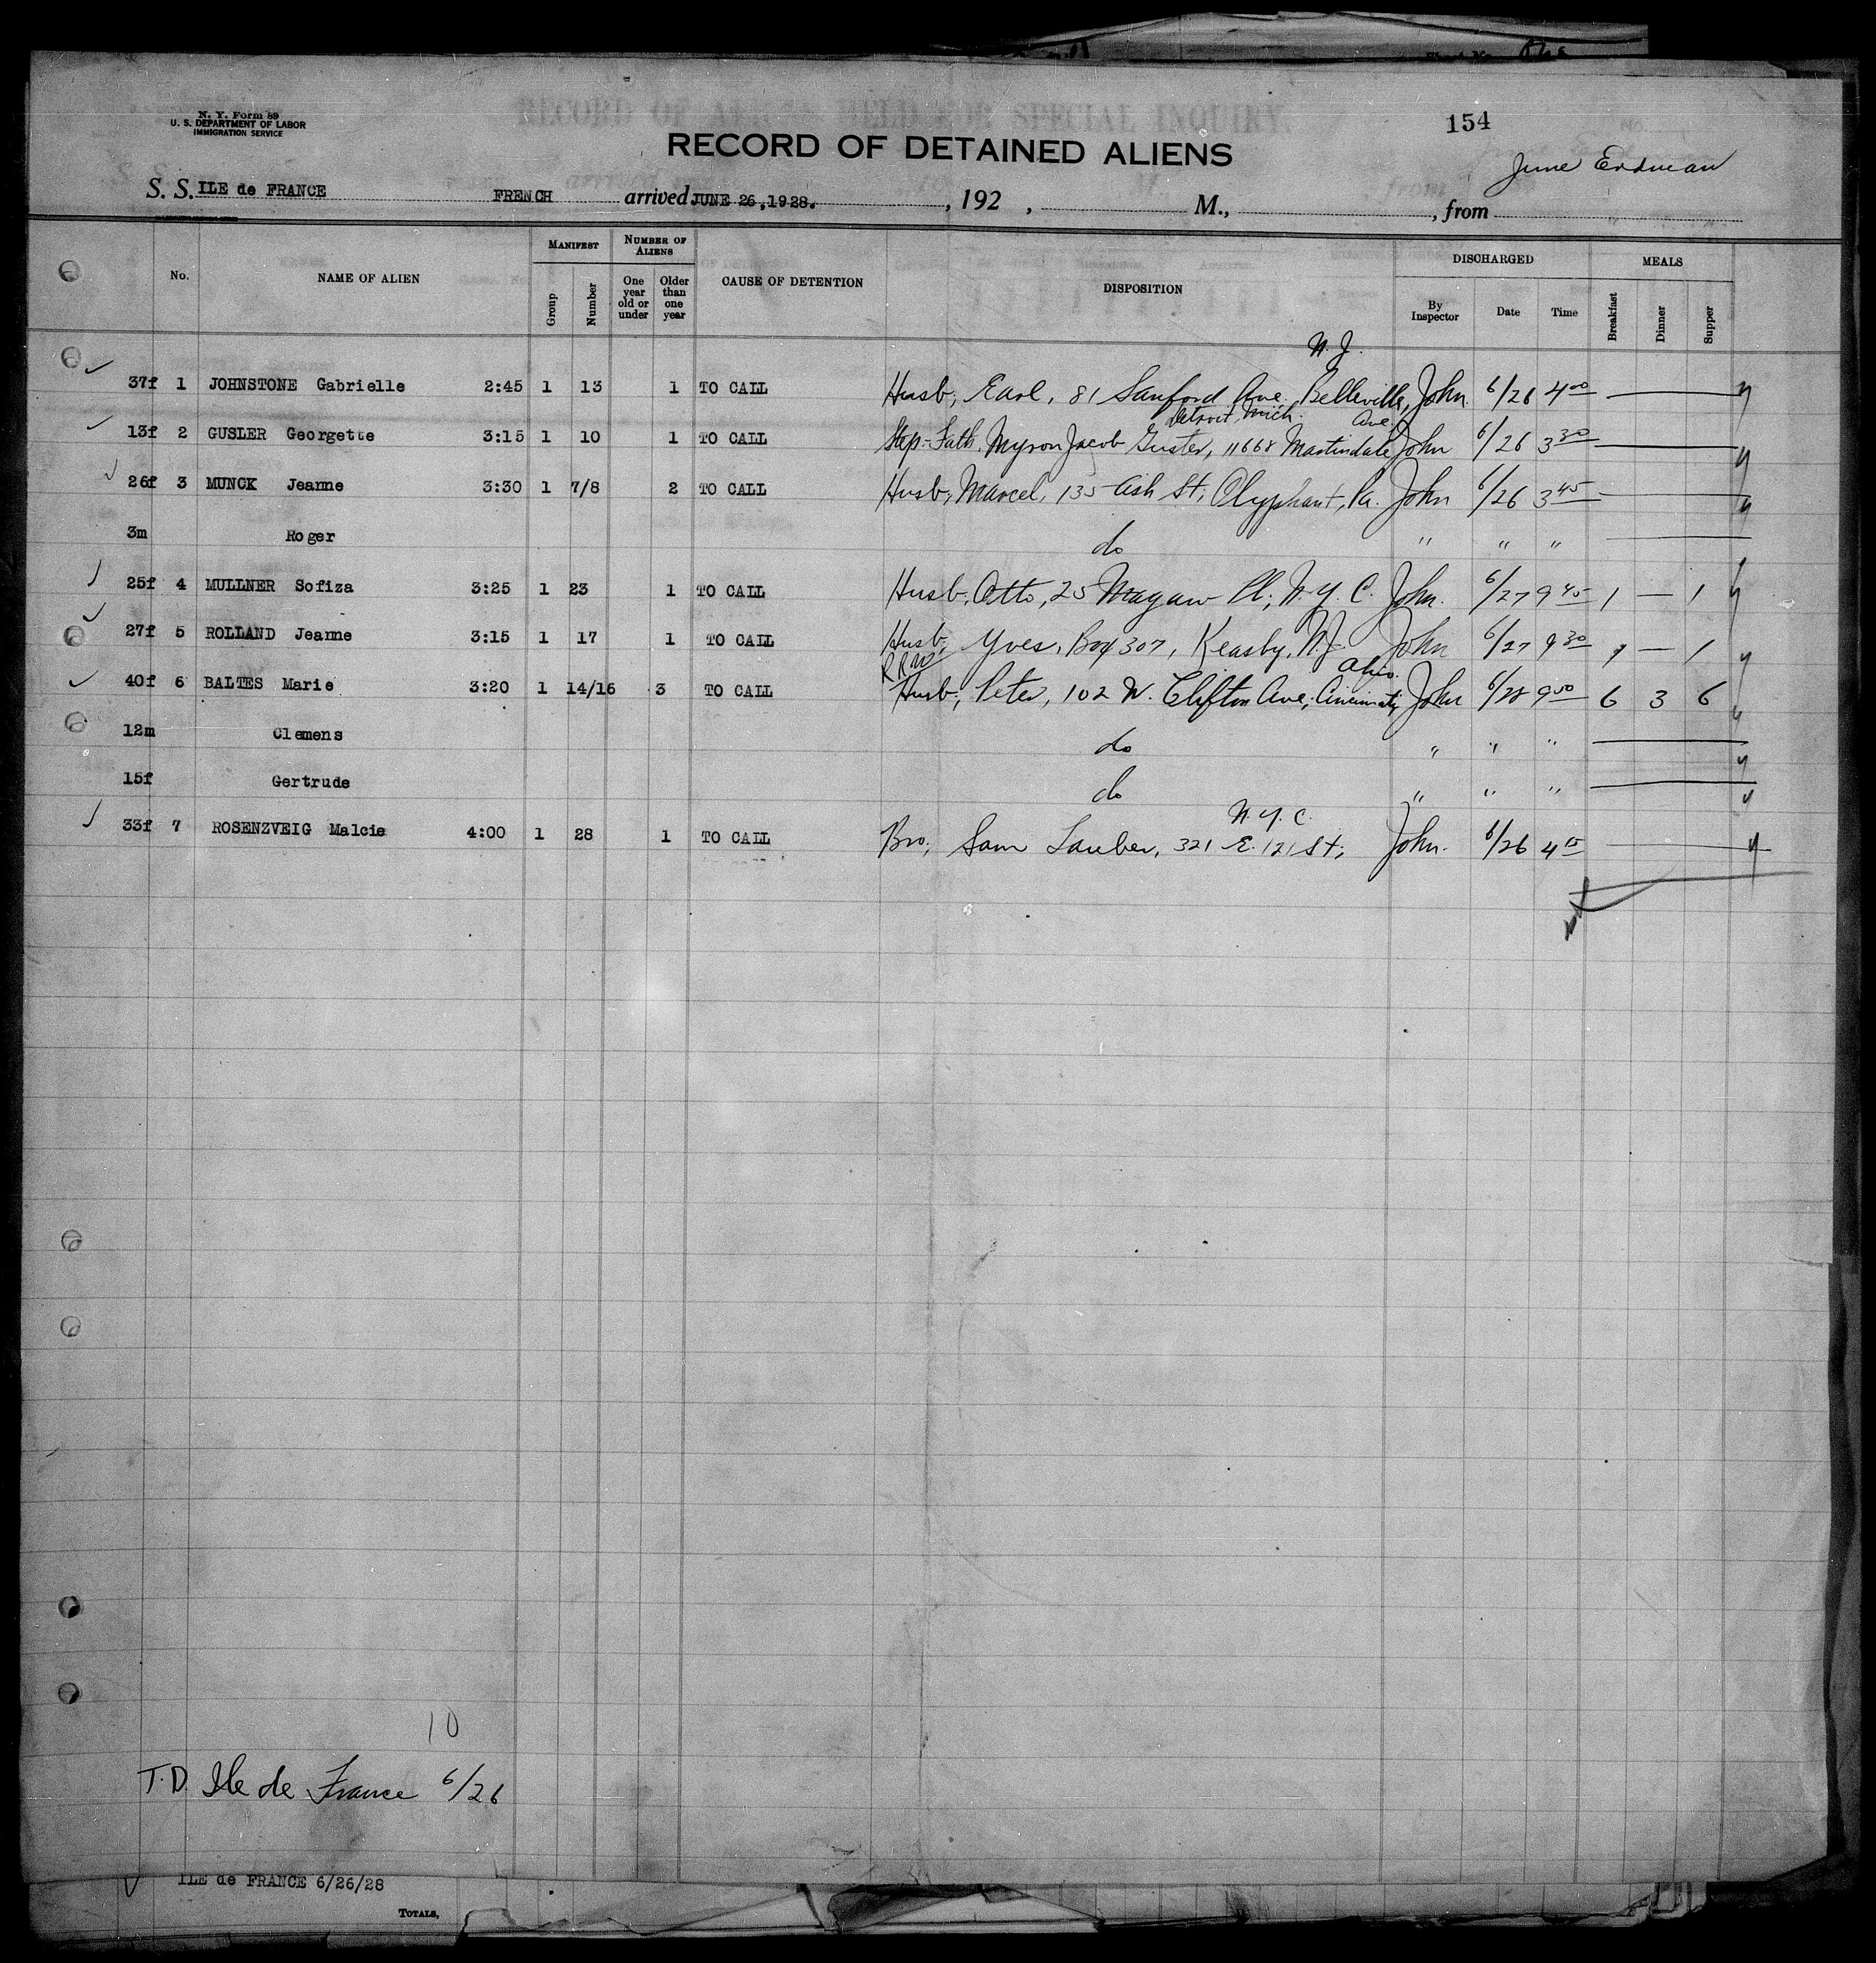 N. Y. Form 89
U. S. DEPARTMENT OF LABOR
IMMIGRATION SERVICE
RECORD OF ALIENS HELD FOR SPECIAL INQUIRY.
154
RECORD OF DETAINED ALIENS
June Erdman
S. S. ILE de FRANCE FRENCH arrived JUNE 26, 1928. , 192 , M., , from
No. NAME OF ALIEN MANIFEST Group Number NUMBER OF ALIENS One year old or under Older than one year CAUSE OF DETENTION DISPOSITION DISCHARGED By Inspector Date Time MEALS Breakfast Dinner Supper
N. J.
37f 1 JOHNSTONE Gabrielle 2:45 1 13 1 TO CALL Husb, Earl, 81 Sanford Ave. Belleville, John. 6/26 4 00
Detroit, Mich. Ave
13f 2 GUSLER Georgette 3:15 1 10 1 TO CALL Step-Fath. Myron Jacob Gusler, 11668 Martindale John 6/26 3 30
26f 3 MUNCK Jeanne 3:30 1 7/8 2 TO CALL Husb, Marcel, 135 Ash St, Olyphant, Pa. John 6/26 3 45
3m Roger do " " "
25f 4 MULLNER Sofiza 3:25 1 23 1 TO CALL Husb, Otto, 25 Magaw Pl, N.Y.C. John. 6/27 9 45 1 — 1
27f 5 ROLLAND Jeanne 3:15 1 17 1 TO CALL Husb, Yves, Box 307, Keasby, N.J. John 6/27 9 30 1 — 1
Ohio.
40f 6 BALTES Marie 3:20 1 14/16 3 TO CALL Husb, Peter, 102 W. Clifton Ave, Cincinnati, John 6/28 9 00 6 3 6
12m Clemens do " " "
15f Gertrude do " " "
N.Y.C.
33f 7 ROSENZVEIG Malcie 4:00 1 28 1 TO CALL Bro, Sam Lauber, 321 E. 121 St, John. 6/26 4 15
10
T.D. Ile de France 6/26
ILE de FRANCE 6/26/28
TOTALS,